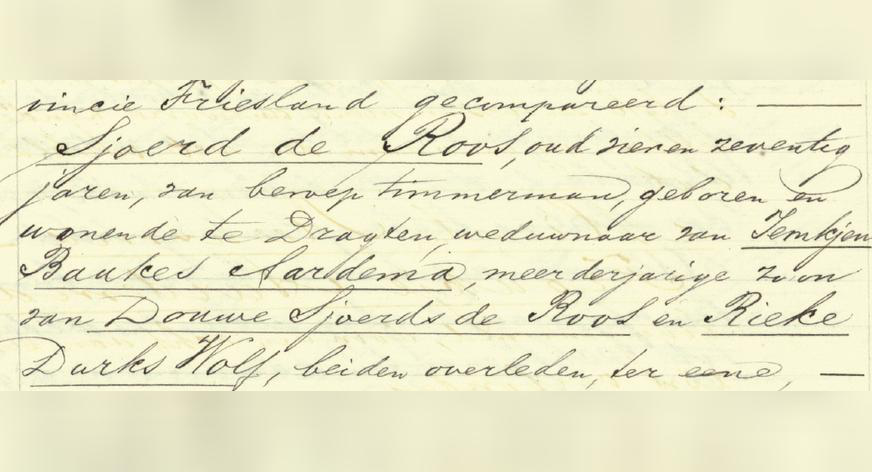 vincie Friesland gecompareerd:
Sjoerd de Roos, oud vier en zeventig
jaren, van beroep timmerman, geboren en
wonende te Dragten, weduwnaar van Iemkjen
Baukes Aardema, meerderjarige zoon
van Douwe Sjoerds de Roos en Rieke
Durks Wolf, beiden overleden, ter eene,